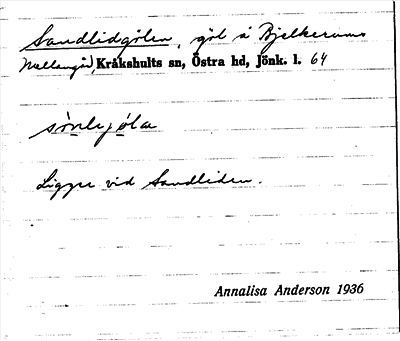 Sandlidgölen, göl å Bjelkerums
Mellangård, Kråkshults sn, Östra hd, Jönk. l. 64
Ligger vid Sandliden.
Annalisa Anderson 1936